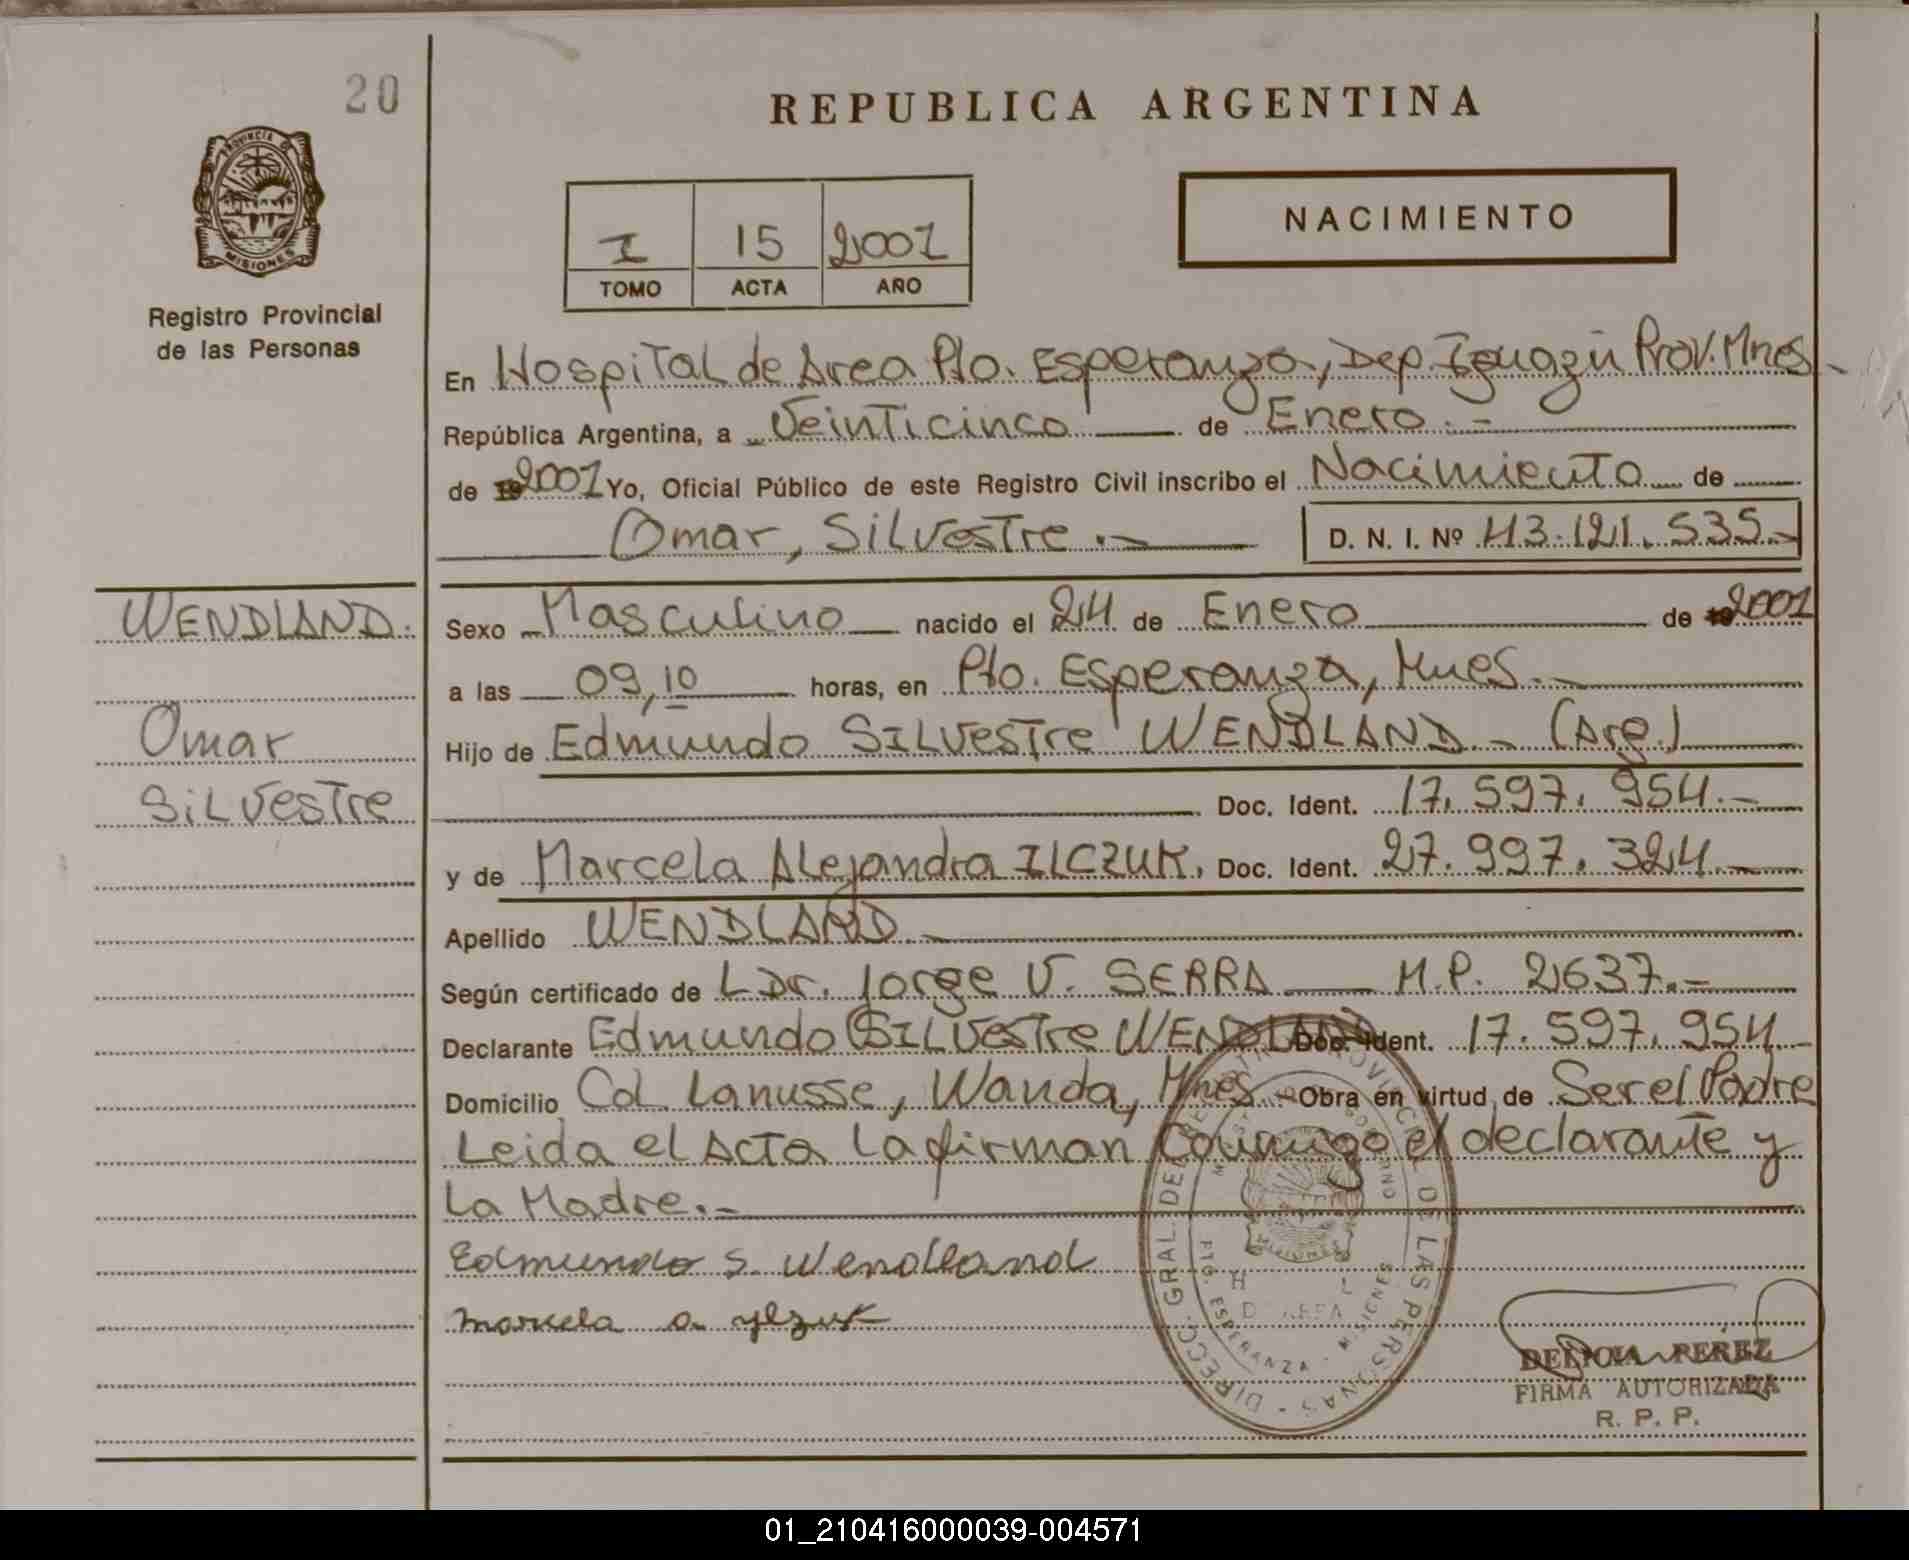 20
REPUBLICA ARGENTINA
PROVINCIA DE
MISIONES
I 15 2001
TOMO ACTA AÑO
NACIMIENTO
Registro Provincial
de las Personas
En Hospital de Area Pto. Esperanza, Dep. Iguazú Prov. Mnes.-
República Argentina, a Veinticinco de Enero.-
de 19 2001 Yo, Oficial Público de este Registro Civil inscribo el Nacimiento de
Omar, Silvestre.-
D. N. I. Nº 43.121.535.-
WENDLAND.
Omar
Silvestre
Sexo Masculino nacido el 24 de Enero de 19 2001
a las 09,10 horas, en Pto. Esperanza, Mnes.-
Hijo de Edmundo SILVestre WENDLAND - (Arg.)
Doc. Ident. 17.597.954.-
y de Marcela Alejandra ILCZUK. Doc. Ident. 27.997.324.-
Apellido WENDLAND.-
Según certificado de Dr. Jorge V. SERRA M.P. 2637.-
Declarante Edmundo SILVestre WENDLAND Doc. Ident. 17.597.954.-
Domicilio Col. Lanusse, Wanda, Mnes. Obra en virtud de Ser el Padre
Leida el Acta la firman Conmigo el declarante y
la Madre.-
Edmundo S. Wendland
marcela a ylzuk
DIRECC. GRAL. DEL REGISTRO PROVINCIAL DE LAS PERSONAS
GOBIERNO
MISIONES
PTO. ESPERANZA - MISIONES
DELICIA PEREZ
FIRMA AUTORIZADA
R. P. P.
01_210416000039-004571